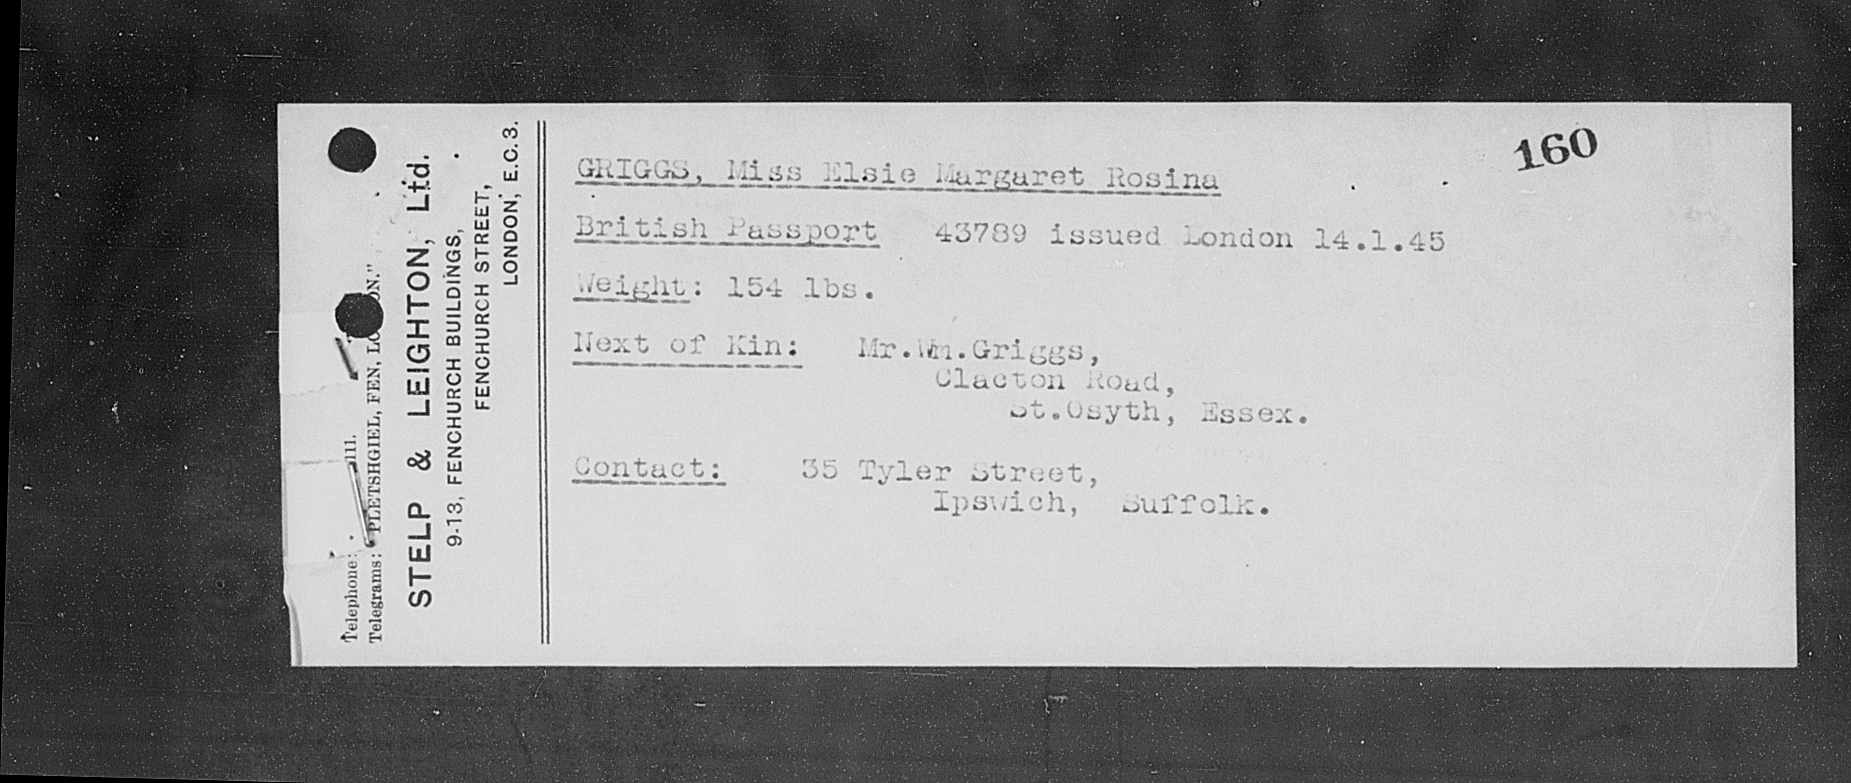 160
GRIGGS, Miss Elsie Margaret Rosina
British Passport 43789 issued London 14.1.45
Weight: 154 lbs.
Next of Kin: Mr.Wm.Griggs,
Clacton Road,
St.Osyth, Essex.
Contact: 35 Tyler Street,
Ipswich, Suffolk.
Telephone:
Telegrams: "PLETSHGIEL, FEN,
STELP & LEIGHTON, Ltd.
9-13, FENCHURCH BUILDINGS,
FENCHURCH STREET,
LONDON, E.C.3.